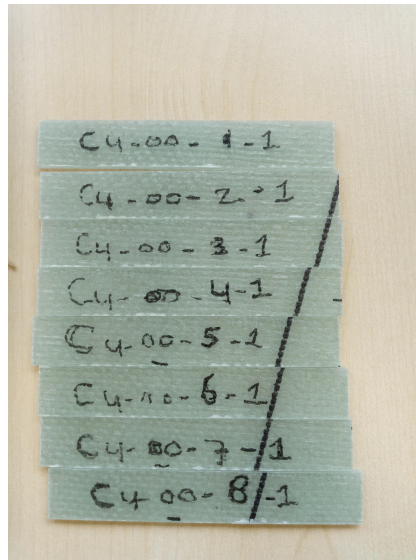 C4-00-1-1
C4-00-2-1
C4-00-3-1
C4-00-4-1
C4-00-5-1
C4-00-6-1
C4-00-7-1
C4-00-8-1